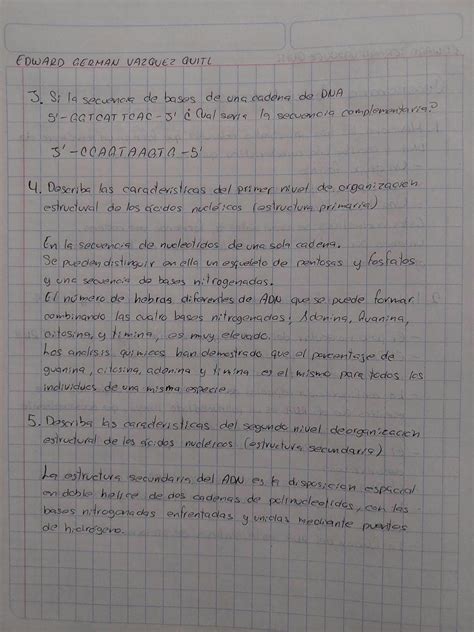 EDWARD GERMAN VAZQUEZ QUITL
3. Si la secuencia de bases de una cadena de DNA
5'-GGTCATTCAC-3' ¿Cual seria la secuencia complementaria?
3'-CCAGTAAGTG-5'
4. Describa las caracteristicas del primer nivel de organizacion
estructural de los ácidos nucléicos (estructura primaria)
En la secuencia de nucleotidos de una sola cadena.
Se pueden distinguir en ella un esqueleto de pentosas y fosfatos
y una secuencia de bases nitrogenadas.
El número de hebras diferentes de ADN que se puede formar
combinando las cuatro bases nitrogenadas; Adenina, Guanina,
citosina, y timina, es muy elevado.
Los analisis químicos han demostrado que el porcentaje de
guanina, citosina, adenina y timina es el mismo para todos los
individuos de una misma especie.
5. Describa las caracteristicas del segundo nivel de organizacion
estructural de los ácidos nucléicos (estructura secundaria)
La estructura secundaria del ADN es la disposicion espacial
en doble helice de dos cadenas de polinucleotidos, con las
bases nitrogenadas enfrentadas y unidas mediante puentes
de hidrógeno.